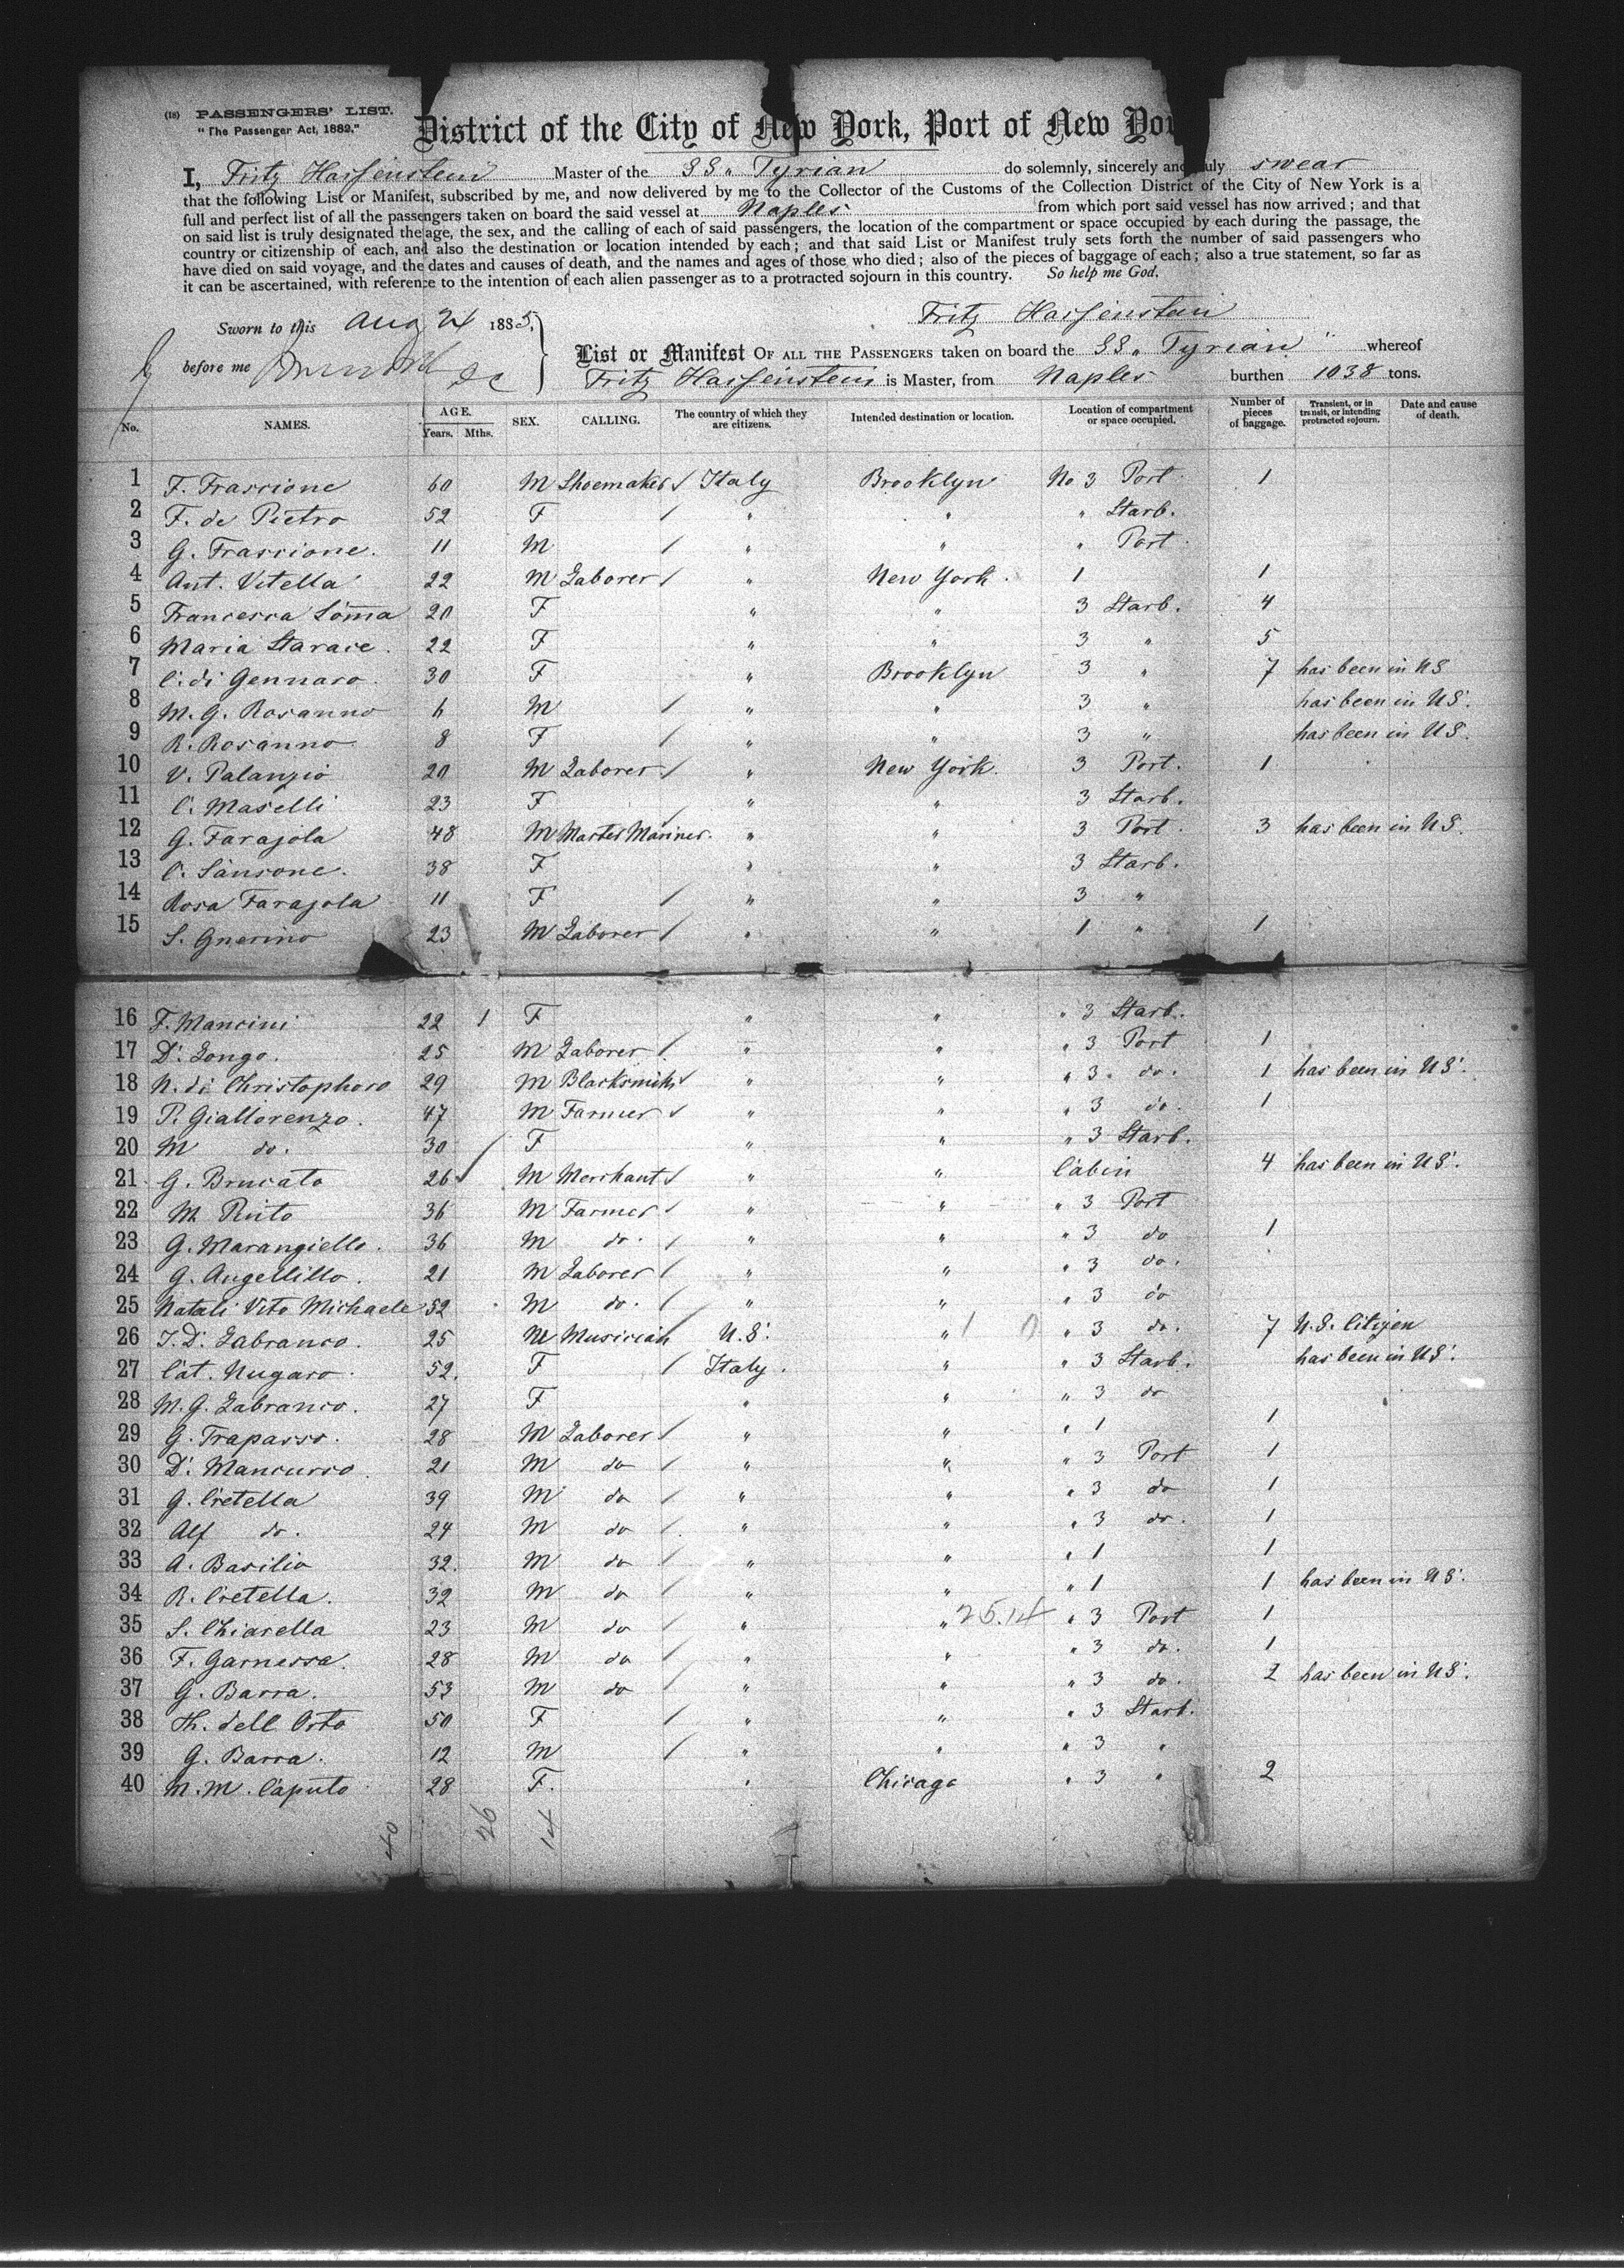 (18) PASSENGERS' LIST.
"The Passenger Act, 1882."
District of the City of New York, Port of New Yor
I, Fritz Hassenstein Master of the SS " Tyrian do solemnly, sincerely and truly swear
that the following List or Manifest, subscribed by me, and now delivered by me to the Collector of the Customs of the Collection District of the City of New York is a
full and perfect list of all the passengers taken on board the said vessel at Naples from which port said vessel has now arrived; and that
on said list is truly designated the age, the sex, and the calling of each of said passengers, the location of the compartment or space occupied by each during the passage, the
country or citizenship of each, and also the destination or location intended by each; and that said List or Manifest truly sets forth the number of said passengers who
have died on said voyage, and the dates and causes of death, and the names and ages of those who died; also of the pieces of baggage of each; also a true statement, so far as
it can be ascertained, with reference to the intention of each alien passenger as to a protracted sojourn in this country. So help me God.
Sworn to this Aug 24 1885, Fritz Hassenstein
before me
List or Manifest OF ALL THE PASSENGERS taken on board the SS " Tyrian " whereof
Fritz Hassenstein is Master, from Naples burthen 1038 tons.
No. NAMES. AGE. Years. Mths. SEX. CALLING. The country of which they are citizens. Intended destination or location. Location of compartment or space occupied. Number of pieces of baggage. Transient, or in transit, or intending protracted sojourn. Date and cause of death.
1 F. Frascione 60 M Shoemaker Italy Brooklyn No 3 Port 1
2 F. de Pietro 52 F " " " Starb.
3 G. Frascione. 11 M " " " Port
4 Ant. Vitella 22 M Laborer " New York. 1 1
5 Francesca Somma 20 F " " 3 Starb. 4
6 Maria Starace. 22 F " " 3 " 5
7 C. di Gennaro. 30 F " Brooklyn 3 " 7 has been in US
8 M. G. Rosanno 6 M " " 3 " has been in US.
9 R. Rosanno 8 F " " 3 " has been in US.
10 V. Palanzio 20 M Laborer " New York. 3 Port. 1
11 C. Maselli 23 F " " 3 Starb.
12 G. Farajola 48 M Master Mariner. " " 3 Port. 3 has been in US.
13 C. Sansone. 38 F " " 3 Starb.
14 Rosa Farajola 11 F " " 3 "
15 S. Guerino 23 M Laborer " " 1 " 1
16 F. Mancini 22 1 F " " " 3 Starb.
17 D. Longo. 25 M Laborer " " " 3 Port 1
18 N. di Christophoro 29 M Blacksmith " " " 3. do. 1 has been in US.
19 P. Giallorenzo. 47 M Farmer " " " 3 do. 1
20 M do. 30 F " " " 3 Starb.
21 G. Brucato 26 M Merchant " " Cabin 4 has been in US.
22 M. Pinto 36 M Farmer " " " 3 Port
23 G. Marangiello. 36 M do. " " " 3 do 1
24 G. Angellillo. 21 M Laborer " " " 3 do.
25 Natali Vito Michaele 52 M do. " " " 3 do
26 J. D. Labranco. 25 M Musician U.S. " " 3 do. 7 U.S. Citizen
27 Cat. Nugaro. 52. F Italy. " " 3 Starb. has been in US.
28 M. G. Labranco. 27 F " " " 3 do
29 G. Trapasso. 28 M Laborer " " " 1 1
30 D. Mancusso. 21 M do " " " 3 Port 1
31 G. Cretella 39 M do " " " 3 do 1
32 Alf do. 24 M do " " " 3 do. 1
33 A. Basilio 32. M do " " " 1 1
34 R. Cretella. 32 M do " " " 1 1 has been in US.
35 S. Chiarella 23 M do " " 25.14 " 3 Port 1
36 F. Garnessa. 28 M do " " " 3 do. 1
37 G. Barra. 53 M do " " " 3 do. 2 has been in US.
38 Th. dell Orto 50 F " " " 3 Starb.
39 G. Barra. 12 M " " " 3 "
40 M. M. Caputo 28 F. " Chicago " 3 " 2
40 26 14